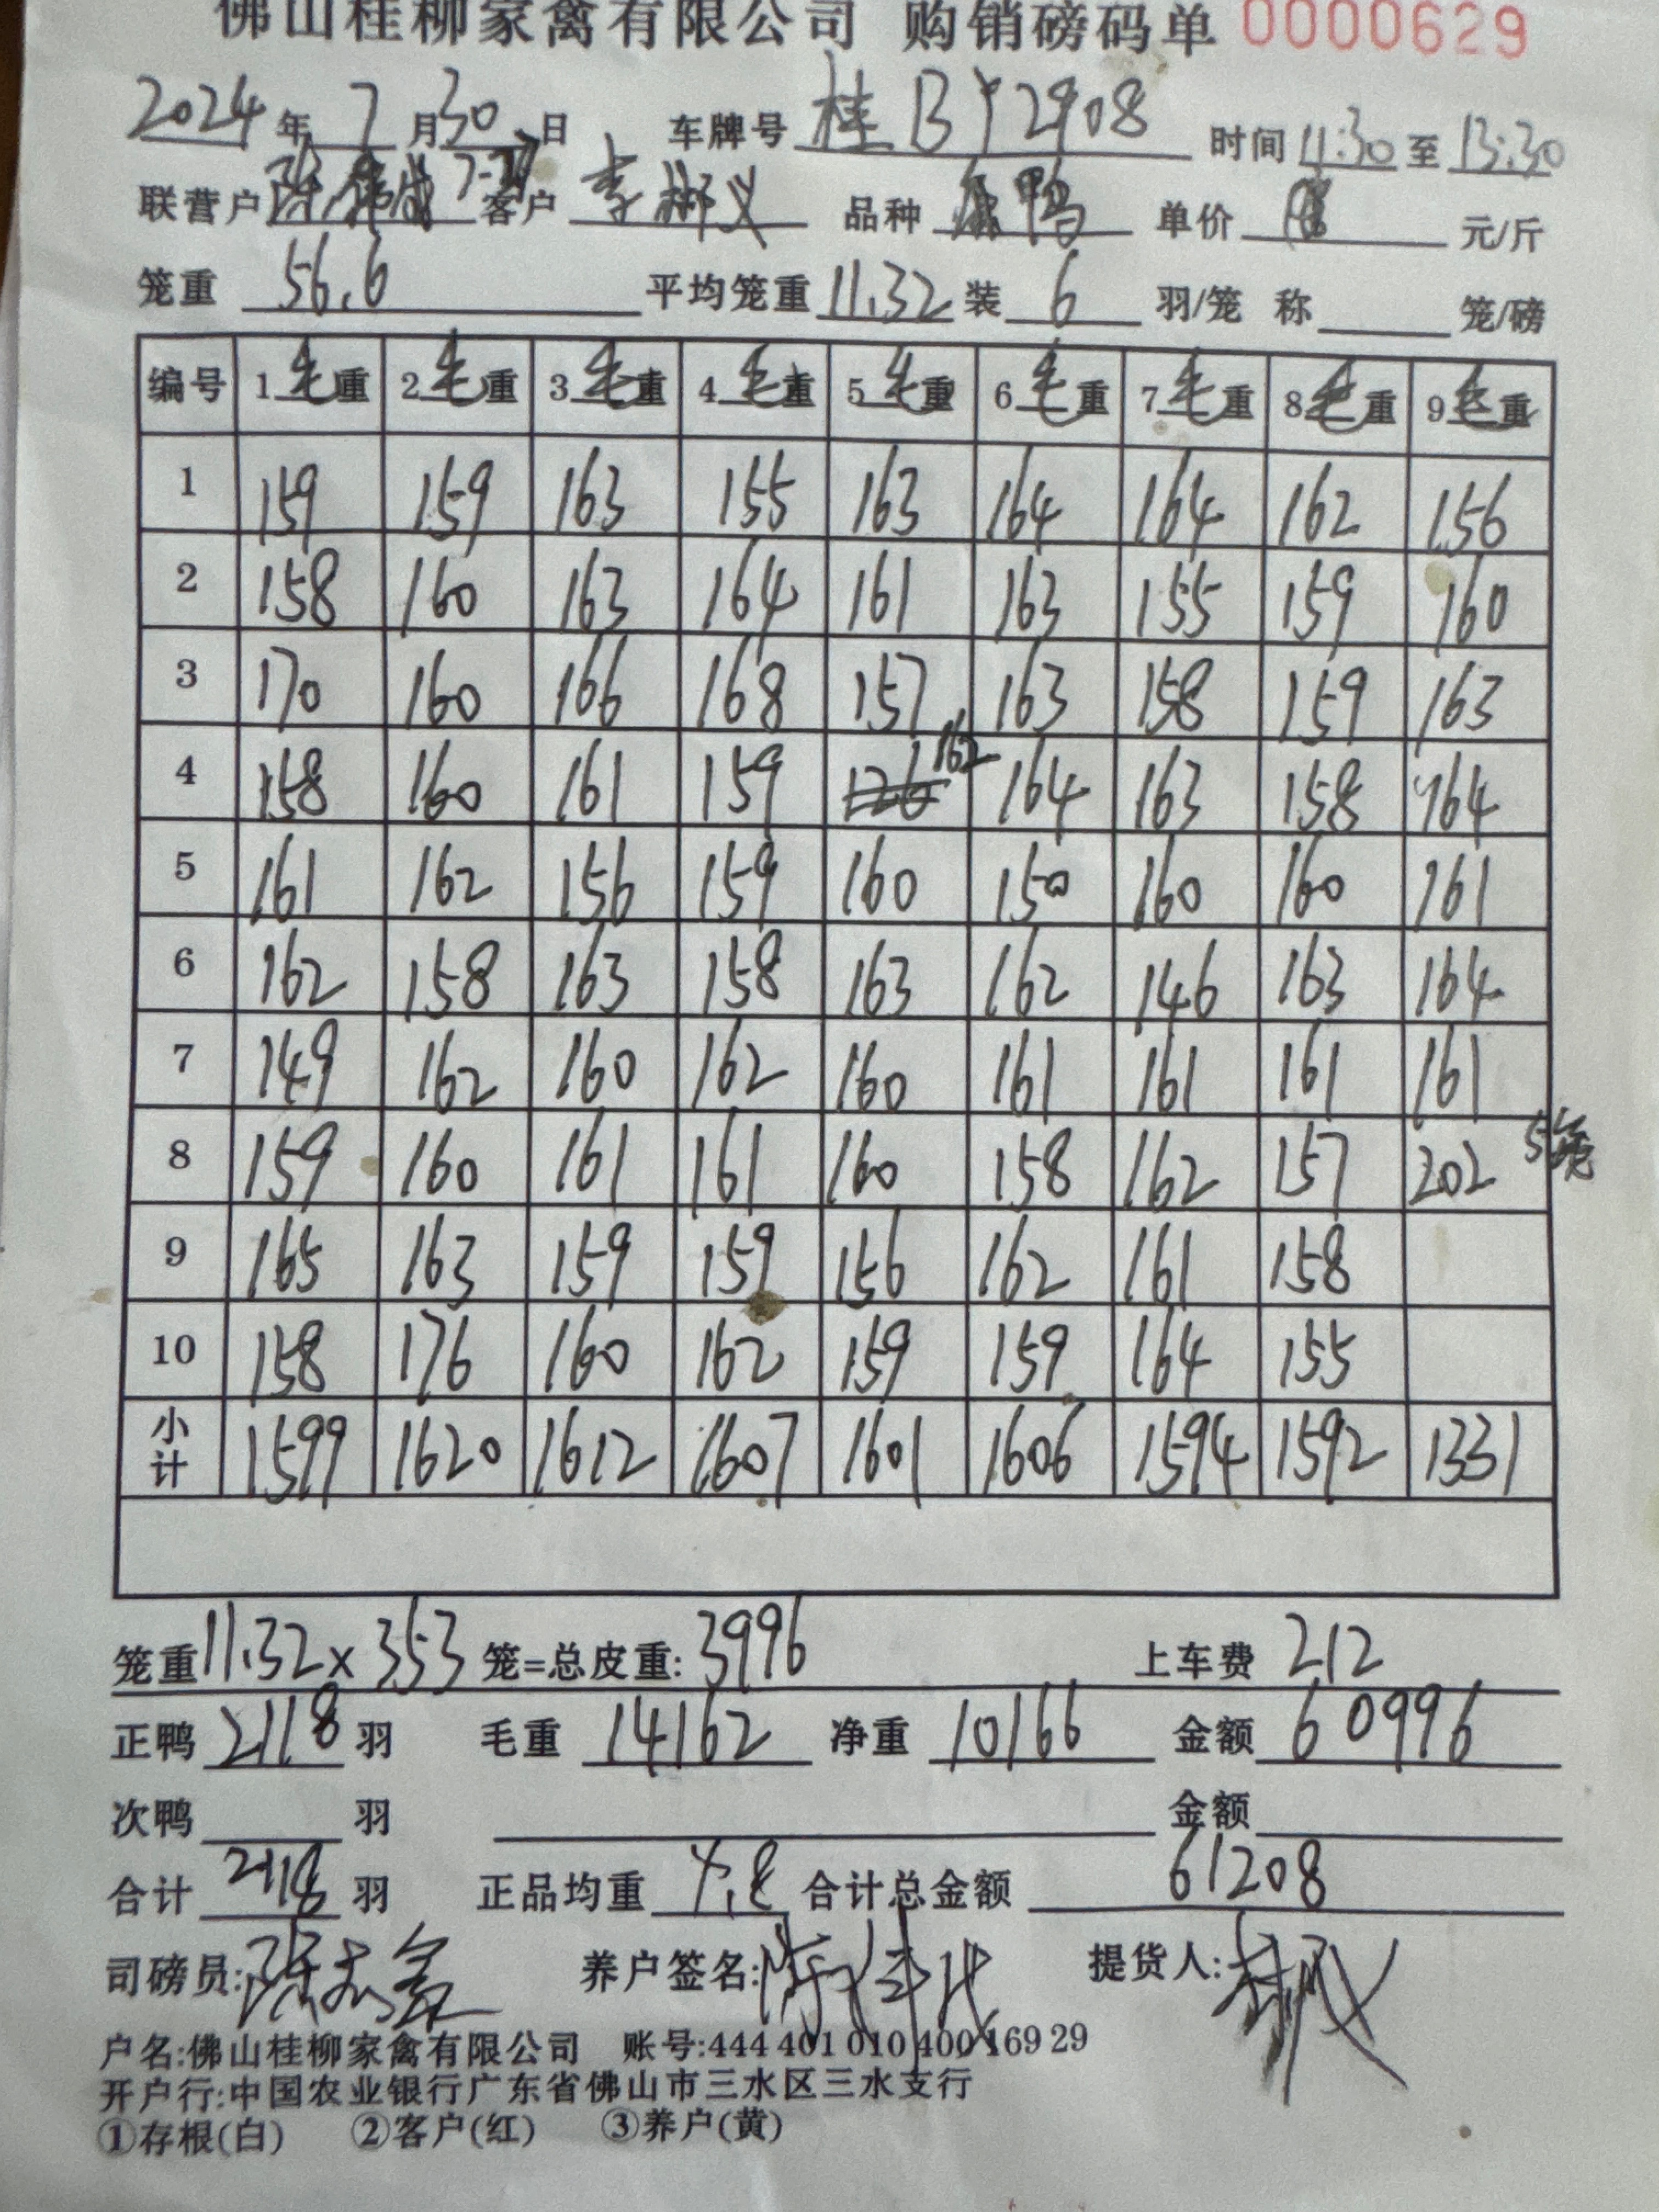 佛山桂柳家禽有限公司 购销磅码单 0000629
2024年7月30日 车牌号 桂BY2908 时间 11:30 至 13:30
联营户 陈 客户 李彬义 品种 鸭 单价 元/斤
笼重 56.6 平均笼重 11.32 装 6 羽/笼 称 笼/磅
编号 1毛重 2毛重 3毛重 4毛重 5毛重 6毛重 7毛重 8毛重 9毛重
1 159 159 163 155 163 164 164 162 156
2 158 160 163 164 161 163 155 159 160
3 170 160 166 168 157 163 158 159 163
4 158 160 161 159 126 162 164 163 158 164
5 161 162 156 159 160 150 160 160 161
6 162 158 163 158 163 162 146 163 164
7 149 162 160 162 160 161 161 161 161
8 159 160 161 161 160 158 162 157 202 5笼
9 165 163 159 159 156 162 161 158
10 158 176 160 162 159 159 164 155
小计 1599 1620 1612 1607 1601 1606 1594 1592 1331
笼重 11.32 x 353 笼=总皮重: 3996 上车费 212
正鸭 2118 羽 毛重 14162 净重 10166 金额 60996
次鸭 羽 金额
合计 2118 羽 正品均重 4.8 合计总金额 61208
司磅员: 陈 养户签名: 陈 提货人:
户名:佛山桂柳家禽有限公司 账号:444 401 010 400 169 29
开户行:中国农业银行广东省佛山市三水区三水支行
①存根(白) ②客户(红) ③养户(黄)